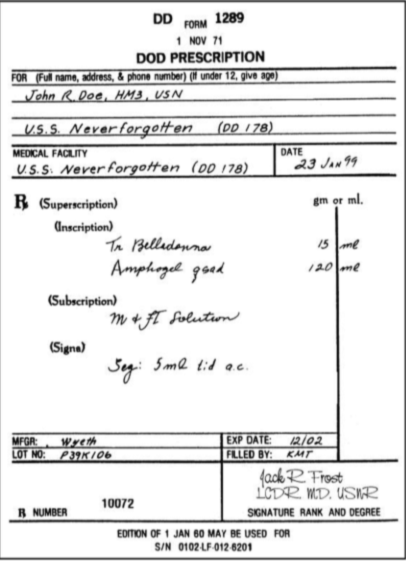 DD FORM 1289
1 NOV 71
DOD PRESCRIPTION
FOR (Full name, address, & phone number) (If under 12, give age)
John R. Doe, HM3, USN
U.S.S. Neverforgotten (DD 178)
MEDICAL FACILITY
U.S.S. Neverforgotten (DD 178)
DATE
23 JAN 99
℞ (Superscription) gm or ml.
(Inscription)
Tr Belladonna 15 ml
Amphogel qsad 120 ml
(Subscription)
M & FT Solution
(Signa)
Sig: 5ml tid a.c.
MFGR: Wyeth EXP DATE: 12/02
LOT NO: P39K106 FILLED BY: KMT
Jack R Frost
LCDR M.D. USNR
10072
℞ NUMBER SIGNATURE RANK AND DEGREE
EDITION OF 1 JAN 60 MAY BE USED FOR
S/N 0102-LF-012-6201